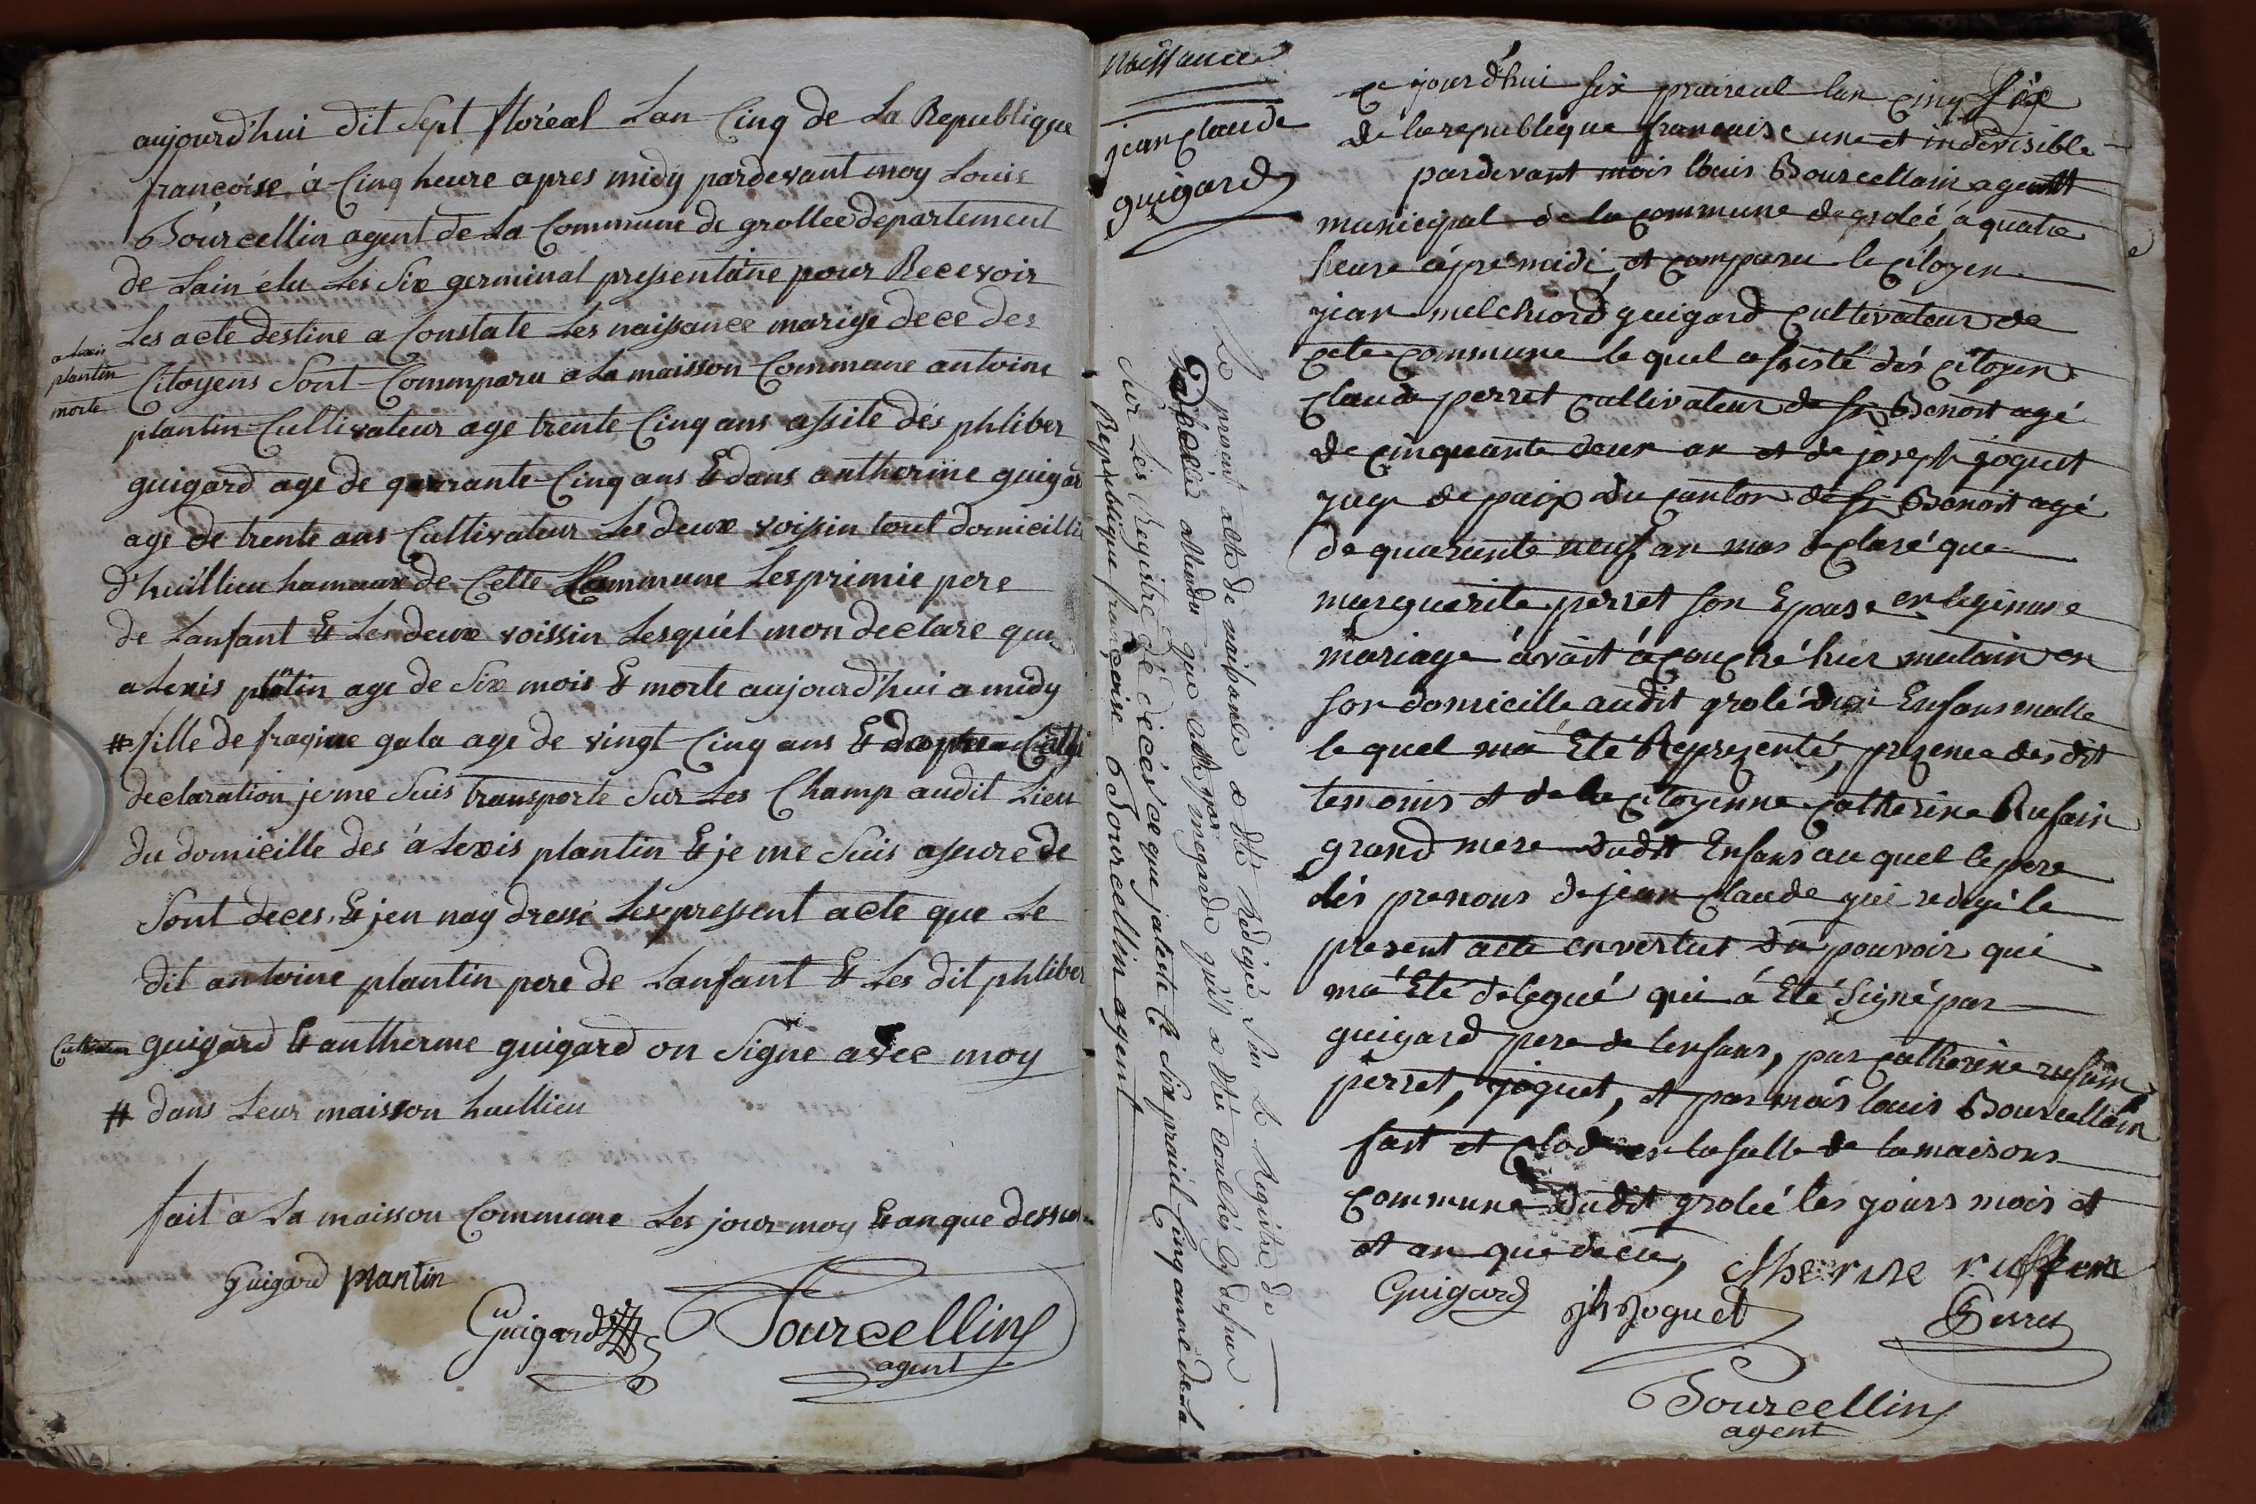 aujourd'hui dit Sept floréal Lan Cinq de La Republique
françoise à Cinq heure apres midy pardevant moy Louis
Bourcellin agent de La Commune de grollee departement
de Lain élu Les Six germinal pressentaine pour Recevoir
Les acte destine a Constate Les naissance marige dece des
alexis
plantin
morte
Citoyens Sont Commparu a La maisson Commune antoine
plantin Cultivateur age trente Cinq ans assite dés phliber
guigard age de quarante Cinq ans & dans antherme guigar
age de trente ans Cultivateur Les deux voissin tout domicillie
d'huillieu hamaux de Cette Commune Les primie pere
de Lanfant & Les deux voissin Lesquel mon declare que
alexis plantin age de Six mois & morte aujourd'hui a midy
# fille de gala age de vingt Cinq ans &
declaration je me Suis transporte Sur Les Champ audit Lieu
du domicille des alexis plantin & je me Suis assure de
Sont deces & jen nay dressé Les pressent acte que Le
dit antoine plantin pere de Lanfant & Les dit phliber
Cultivateur guigard & antherme guigard on Signe avec moy
# dans Leur maisson huellieu
fait a La maisson Commune Les jour moy & anque dessus
Guigard plantin
Guigard Bourcellin
agent
Naissance
jean Claude
guigard
Le present acte de naissance a été Redigé Sur Le Registre de
décés attendu que par megarde qu'il a été couché cy dessus
Sur Les Registre de décés ce que jateste Ce Six prairial Cinq anne de la
Republique françoise Bourcellin agent
Ce jourd'hui six praireal lan cinq
de la republique francaise une et indévisible
pardevant mois louis Bourcellain agent
municipal de la commune de grolée à quatre
heure àpremidi, et comparu le citoyen
jean melchiord guigard cultivateur de
cete commune le quel assisté dés citoyen
claude perret cultivateur de st Benoit agé
de cinquante deux an et de joseph joguet
juge de paix du canton de st Benoit agé
de quarante neuf an mas declaré que
marguerite perret son Epouse en legitime
mariage àvait àcouché hier matain en
son domicille audit grolé d'un Enfans malle
le quel ma Eté Reprezenté, prezence des dit
temoins et de la citoyenne catherine Rufain
grand mere dudit Enfans au quel le pere
dés prenoms de jean claude qui redigé le
present acte en vertut du pouvoir qui
ma Eté delegué qui à Eté Signé par
guigard pere de lenfans, par catherine rufain
perret, joguet, et par mois louis Bourcellain
fait et clod en la salle de la maisons
commune dudit grolée les jours mois et
et an que decu, therine ruffin
Guigard jh Joguet Perret
Bourcellin
agent